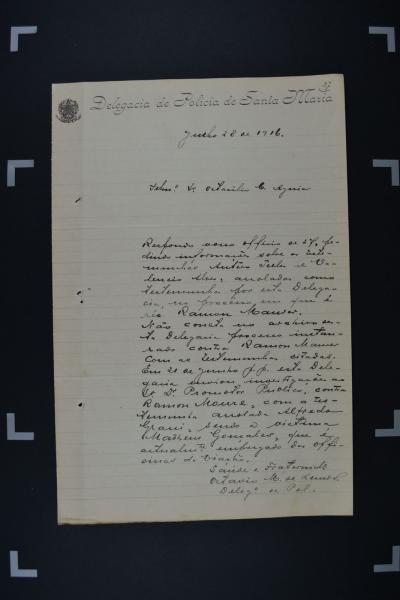 27
Delegacia de Policia de Santa Maria
Junho 28 de 1916.
Illmo. Sr. Octacilio C. Aguiar
Respondo vosso officio de 27, pe-
dindo informações sobre as teste-
munhas Antão e Va-
lencio, arroladas como
testemunha por esta Delega-
cia, no processo em que é
réo Ramon Maurer.
Não consta no archivo des-
ta Delegacia processo instau-
rado contra Ramon Maurer
com as testemunhas citadas.
Em 21 de Junho p.p. esta Dele-
gacia enviou investigação ao
Sr. Dr. Promotor Publico, contra
Ramon Maurer, com a tes-
temunha arrolada Alfredo
sendo a victima
Matheus Gonçalves, que é
actualmte. empregado das offi-
cinas da Viação.
Saúde e Fraternide.
Octavio M. de Lemos.
Delego. de Pol.